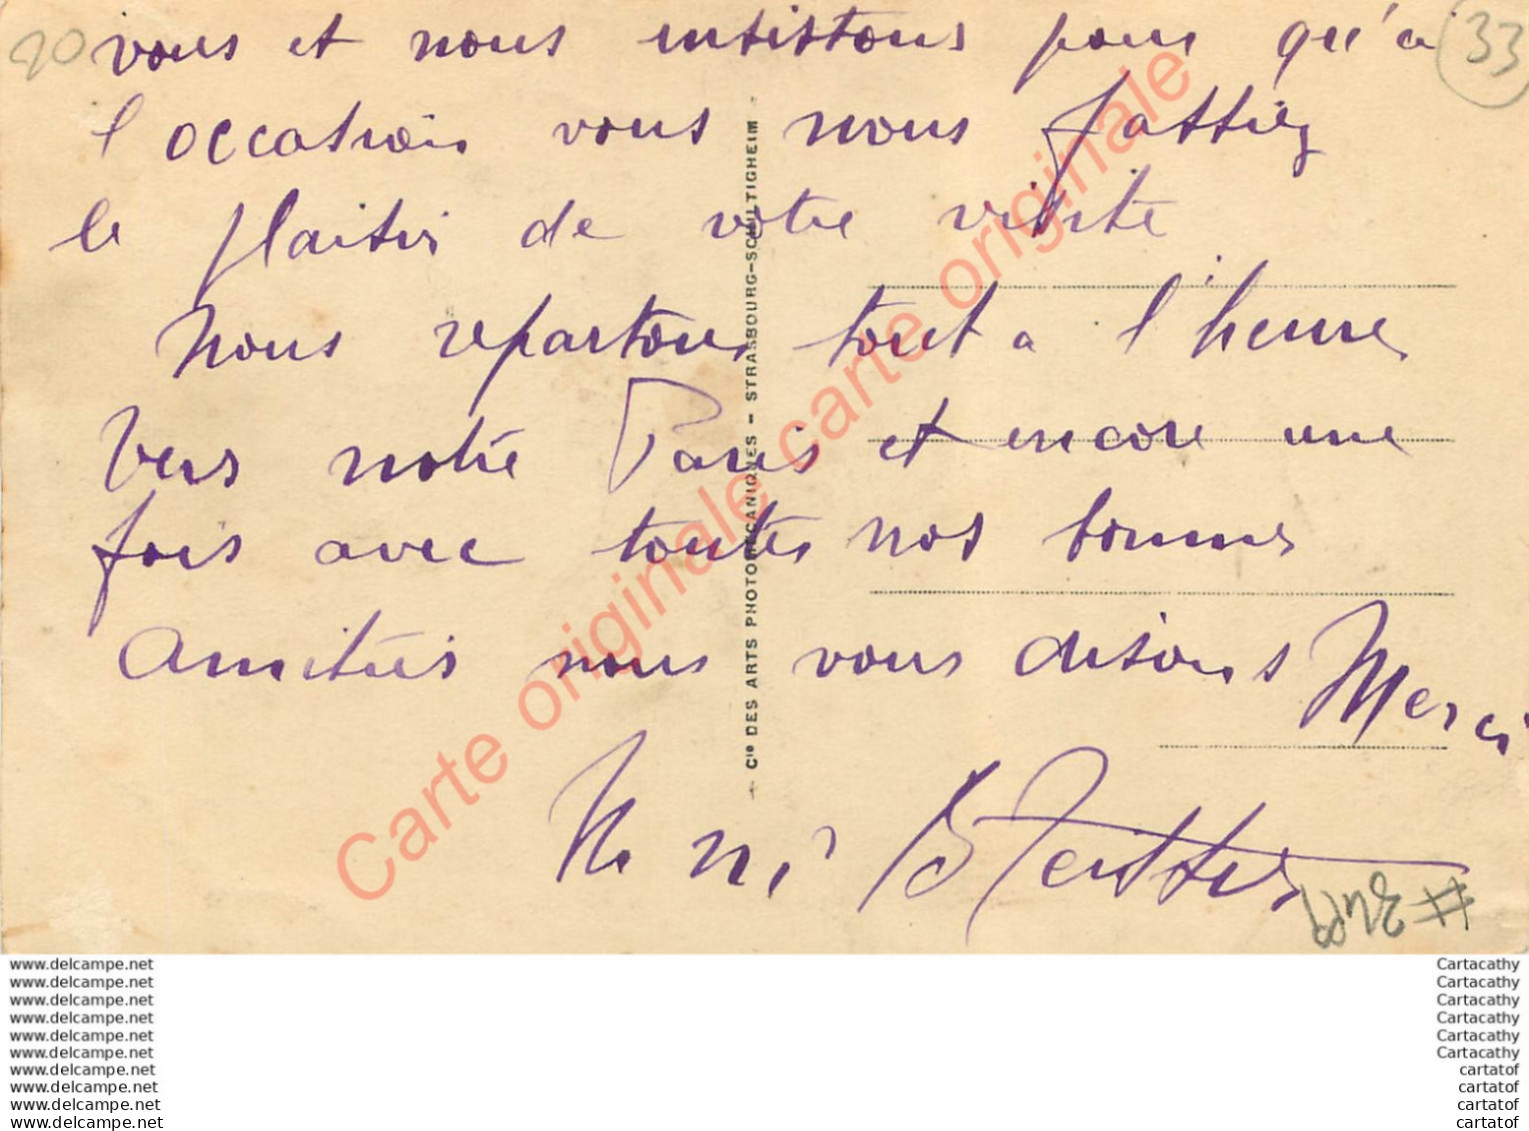 20
33
vous et nous insistons pour qu'à
l'occasion vous nous fassiez
le plaisir de votre visite
Nous repartons tout a l'heure
vers notre Paris et encore une
fois avec toutes nos bonnes
amitiés nous vous disons Merci
Cie DES ARTS PHOTOMÉCANIQUES - STRASBOURG-SCHILTIGHEIM -
Carte originale carte originale
www.delcampe.net
www.delcampe.net
www.delcampe.net
www.delcampe.net
www.delcampe.net
www.delcampe.net
www.delcampe.net
www.delcampe.net
www.delcampe.net
www.delcampe.net
Cartacathy
Cartacathy
Cartacathy
Cartacathy
Cartacathy
Cartacathy
cartatof
cartatof
cartatof
cartatof